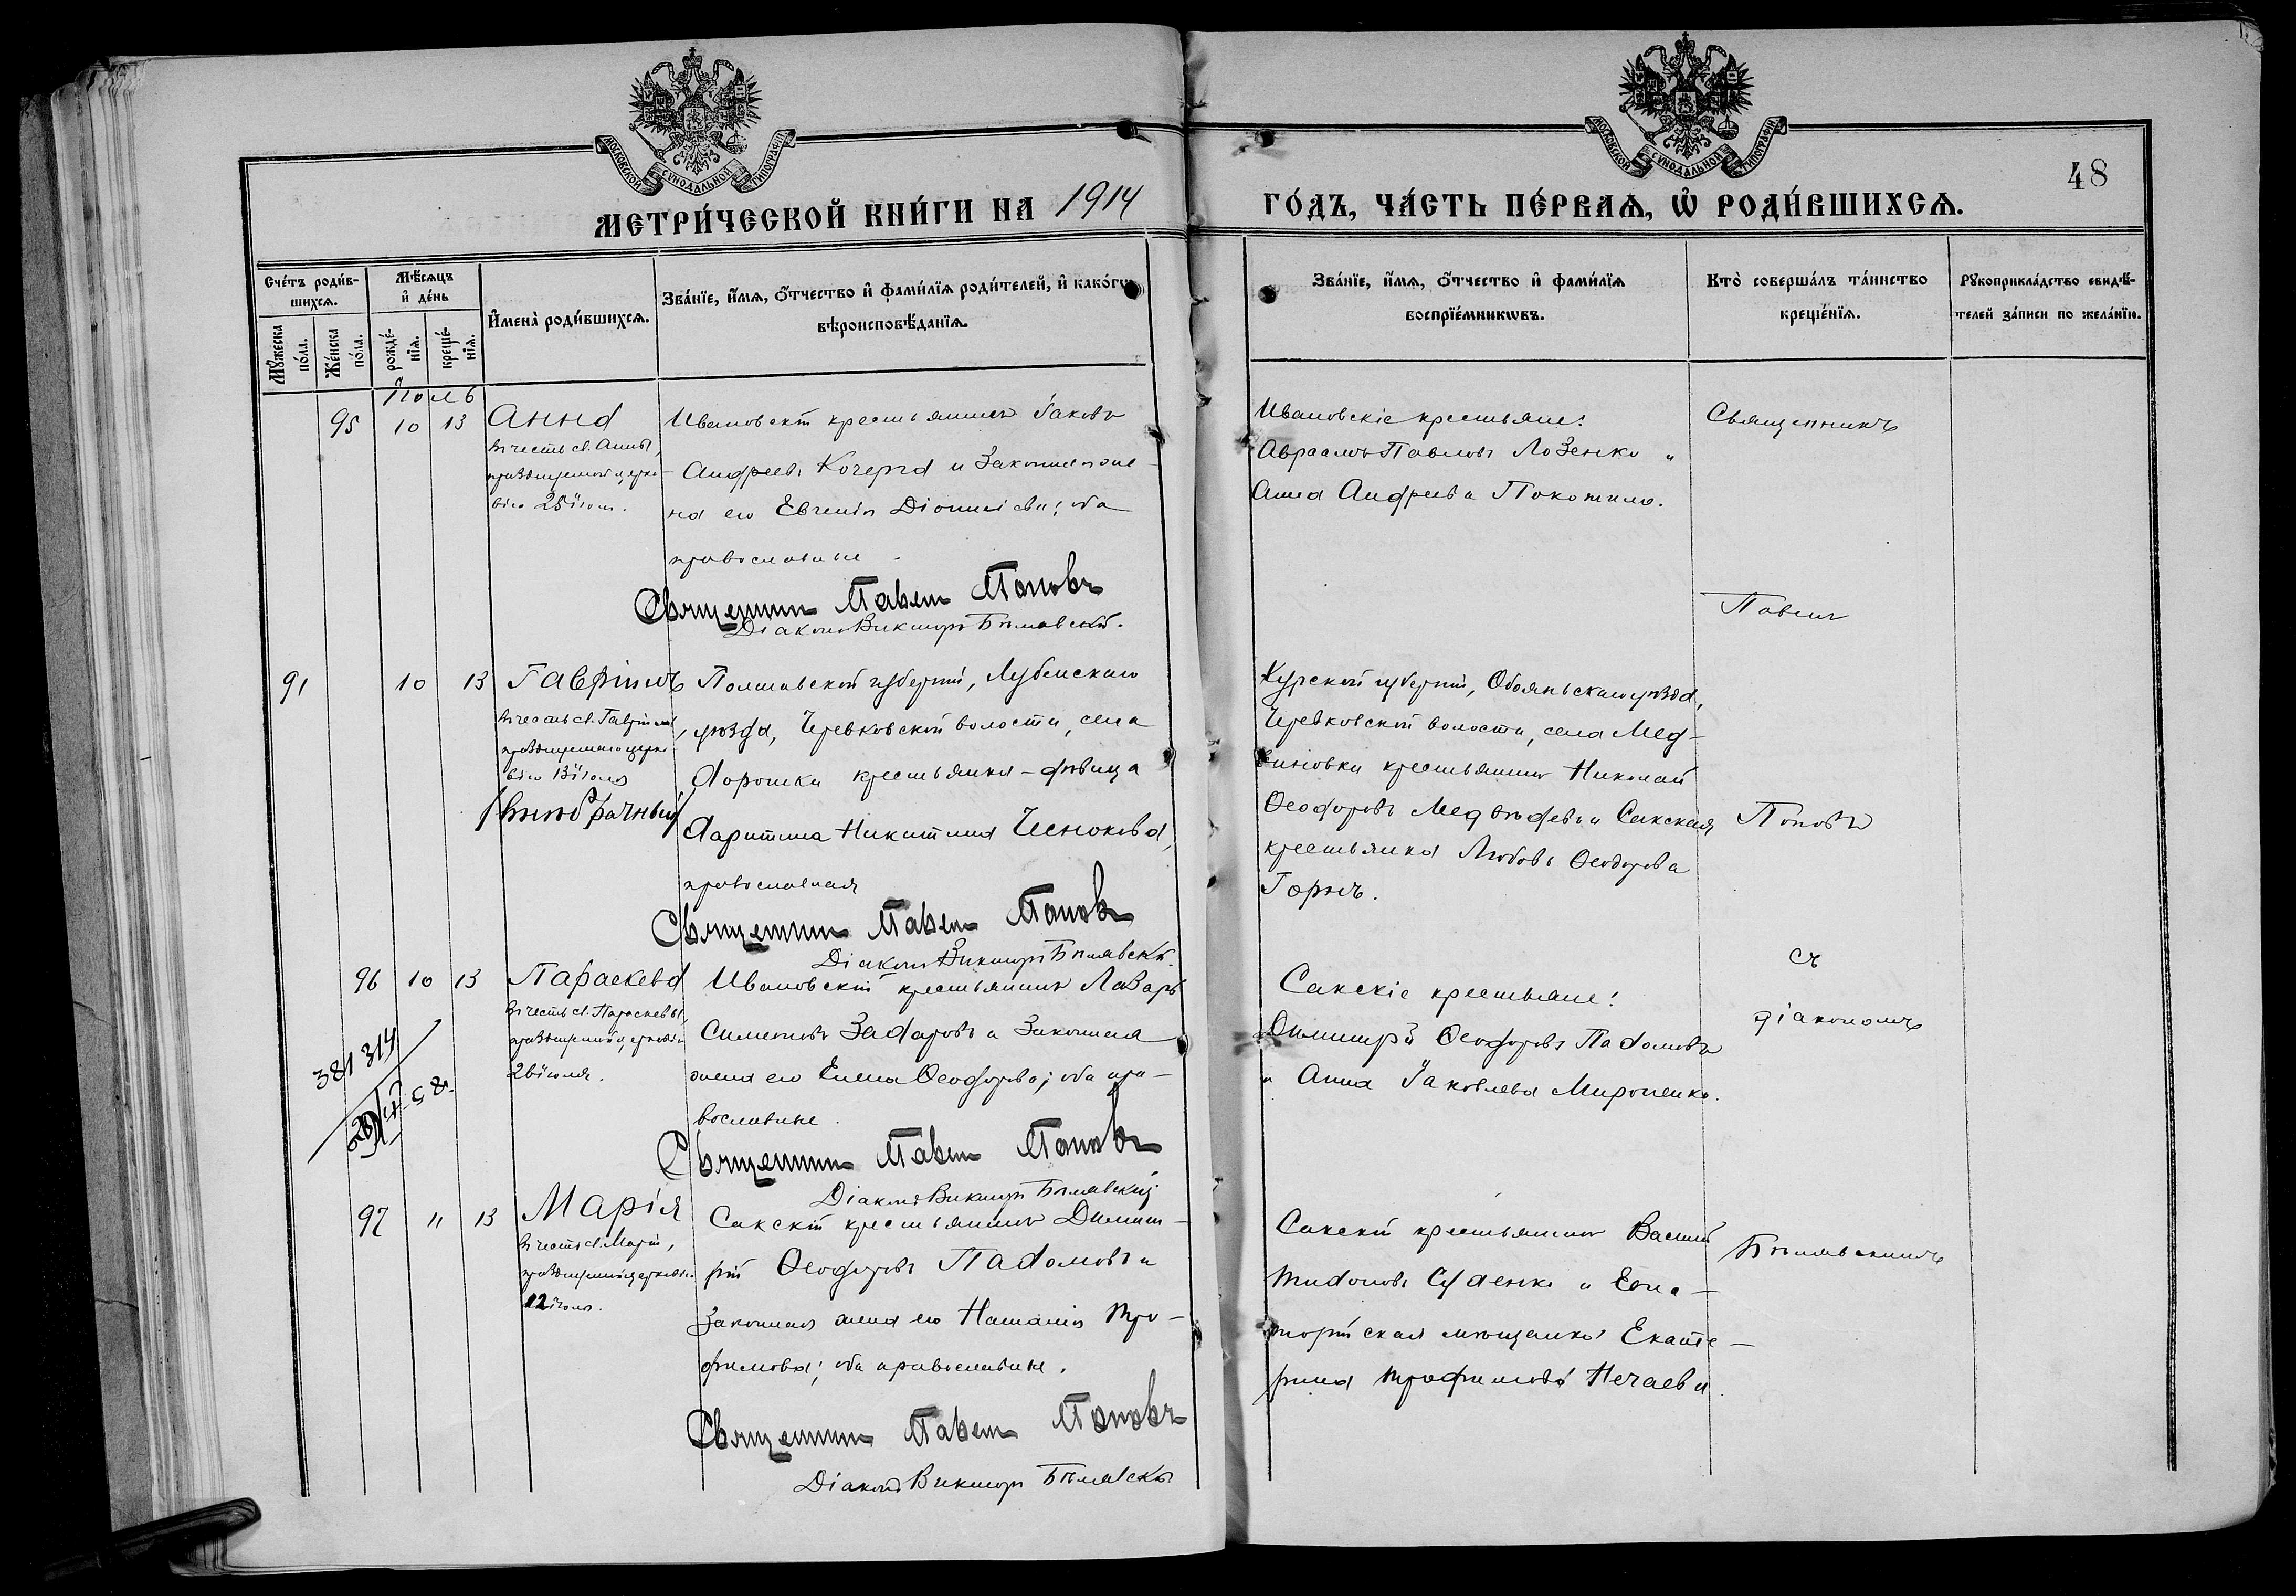 МОСКОВСКОЙ СѴНОДАЛЬНОЙ ТИПОГРАФІИ
МОСКОВСКОЙ СѴНОДАЛЬНОЙ ТИПОГРАФІИ
48
МЕТРИ́ЧЕСКОЙ КНИ́ГИ НА 1914
ГО́ДЪ, ЧА́СТЬ ПЕ́РВАѦ, Ѡ҆ РОДИ́ВШИХСѦ.
Сче́тъ роди́в-
шихсѧ.
Мꙋ́жеска по́ла.
Же́нска по́ла.
Мѣ́сѧцъ и҆ де́нь
рожде́-нїѧ.
креще́-нїѧ.
И҆мена̀ роди́вшихсѧ.
Зва́нїе, и҆́мѧ, ѻ҆́тчество и҆ фами́лїѧ роди́телей, и҆ како́гѡ
вѣроисповѣ́данїѧ.
Зва́нїе, и҆́мѧ, ѻ҆́тчество и҆ фами́лїѧ
воспрїе́мникѡвъ.
Кто̀ соверша́лъ та́инство
креще́нїѧ.
Рꙋкоприкла́дство свидѣ́-
телей за́писи по жела́нїю.
Іюль
95 10 13
Анна
въ честь св. Анны,
празднуемой церко-
вію 25 іюля.
Ивановскій крестьянинъ Іаковъ
Андреевъ Кочерга и законная же-
на его Евгенія Діонисіева; оба
православные.
Священникъ Павелъ Поповъ
Діаконъ Викторъ Бѣлявскій.
Ивановскіе крестьяне:
Авраамъ Павловъ Лозенко и
Анна Андреева Покотило.
Священникъ
Павелъ
91 10 13
Гавріилъ
въ честь св. Гавріила,
празднуемаго церко-
вію 13 іюля
/внѣбрачный/
Полтавской губерніи, Лубенскаго
уѣзда, Черевковской волости, села
крестьянка-дѣвица
Харитина Никитина Чеснокова,
православная
Священникъ Павелъ Поповъ
Діаконъ Викторъ Бѣлявскій.
Курской губерніи, Обояньскаго уѣзда,
волости, села Мед-
виновки крестьянинъ Николай
Ѳеодоровъ Медвѣдевъ и Сакская
крестьянка Любовь Ѳеодорова
Горычъ.
Поповъ
96 10 13
Параскева
въ честь св. Параскевы,
празднуемой церковію
26 іюля.
381 314
Ивановскій крестьянинъ Лазарь
Симеоновъ Захаровъ и законная
жена его Елена Ѳеодорова; оба пра-
вославные.
Священникъ Павелъ Поповъ
Діаконъ Викторъ Бѣлявскій
Сакскіе крестьяне:
Димитрій Ѳеодоровъ Пахомовъ
и Анна Іаковлева Мироненко.
съ
діакономъ
97 11 13
Марія
въ честь св. Маріи,
празднуемой церковію
12 іюля.
Сакскій крестьянинъ Димит-
рій Ѳеодоровъ Пахомовъ и
законная жена его Наталія Тро-
фимова; оба православные.
Священникъ Павелъ Поповъ
Діаконъ Викторъ Бѣлявскій
Сакскій крестьянинъ Василій
Тихоновъ и Евпа-
торійская мѣщанка Екате-
рина Трофимова Нечаева.
Бѣлявскимъ